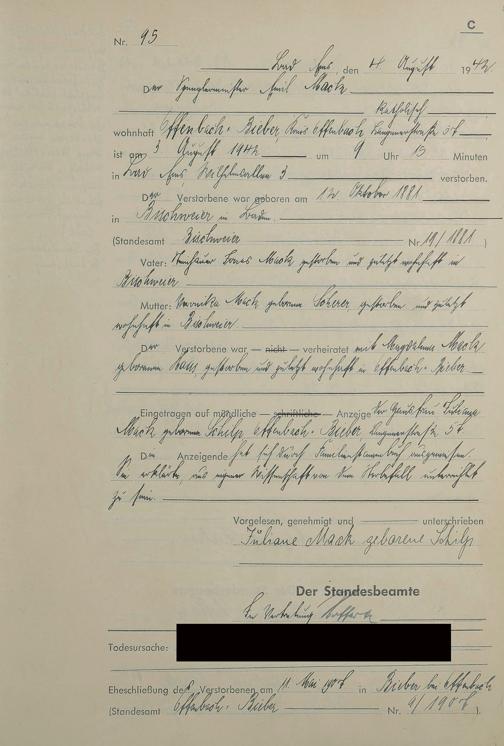 C
Nr. 95
Bad Ems, den 4. August 1942
Der Spenglermeister Emil Mack
katholisch
wohnhaft Offenbach-Bieber, Kreis Offenbach, Langenerstraße 54
ist am 3. August 1942 um 9 Uhr 15 Minuten
in Bad Ems, Wilhelmsallee 3 verstorben.
Der Verstorbene war geboren am 12. Oktober 1881
in Bischweier in Baden.
(Standesamt Bischweier Nr. 19/1881)
Vater: Mack gestorben und zuletzt wohnhaft in
Bischweier
Mutter: Veronika Mack geborene Scherer gestorben und zuletzt
wohnhaft in Bischweier
Der Verstorbene war — nicht — verheiratet mit Magdalena Mack
geborenen gestorben und zuletzt wohnhaft in Offenbach-Bieber
Eingetragen auf mündliche — schriftliche — Anzeige der Hausfrau Juliane
Mack geborene Schilp, Offenbach-Bieber, Langenerstraße 54
Die Anzeigende hat sich durch Familienstammbuch ausgewiesen.
Sie erklärte aus eigener Wissenschaft von dem Sterbefall unterrichtet
zu sein.
Vorgelesen, genehmigt und unterschrieben
Juliane Mack geborene Schilp
Der Standesbeamte
In Vertretung
Todesursache:
Eheschließung des Verstorbenen am 11. Mai 1907 in Bieber bei Offenbach
(Standesamt Offenbach-Bieber Nr. 9/1907).